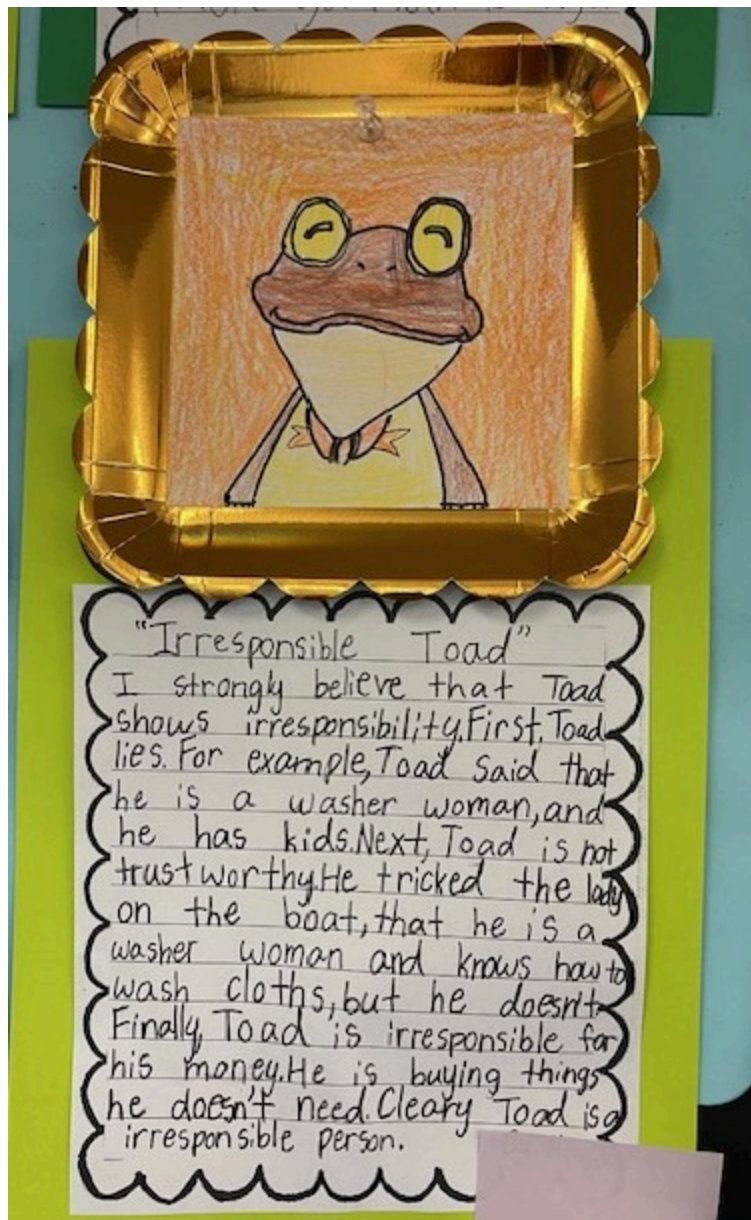 "Irresponsible Toad"
I strongly believe that Toad
shows irresponsibility. First, Toad
lies. For example, Toad said that
he is a washer woman, and
he has kids. Next, Toad is not
trustworthy. He tricked the lady
on the boat, that he is a
washer woman and knows how to
wash cloths, but he doesn't.
Finally, Toad is irresponsible for
his money. He is buying things
he doesn't need. Cleary Toad is a
irresponsible person.